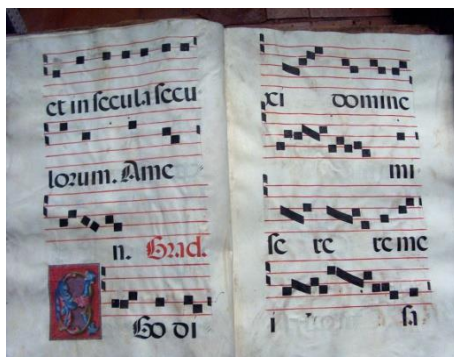 et in secula secu
lorum. Ame
n. Grad.
Go di
xi domine
mi
se re re me
i sa